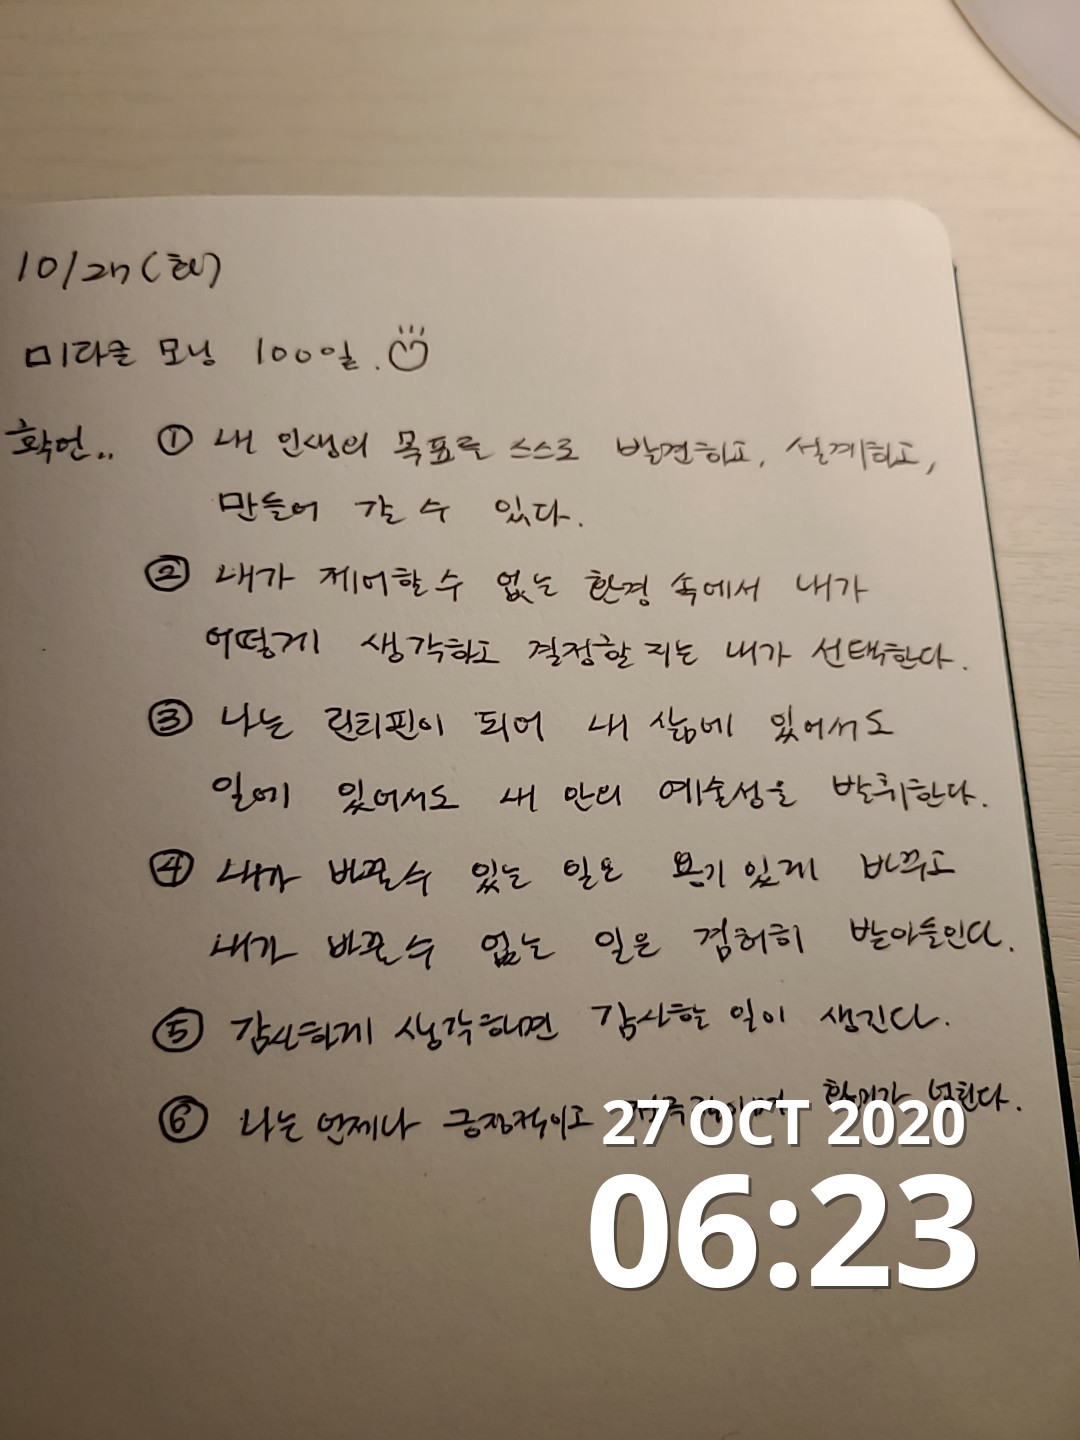 10/27 (화)
미라클 모닝 100일.
확언.. ① 내 인생의 목표를 스스로 발견하고, 설계하고,
만들어 갈 수 있다.
② 내가 제어할 수 없는 환경 속에서 내가
어떻게 생각하고 결정할 지는 내가 선택한다.
③ 나는 린티핀이 되어 내 삶에 있어서도
일에 있어서도 내 안의 예술성을 발휘한다.
④ 내가 바꿀수 있는 일은 용기 있게 바꾸고
내가 바꿀수 없는 일은 겸허히 받아들인다.
⑤ 감사하게 생각하면 감사할 일이 생긴다.
⑥ 나는 언제나 긍정적이고 활기가 넘친다.
27 OCT 2020
06:23